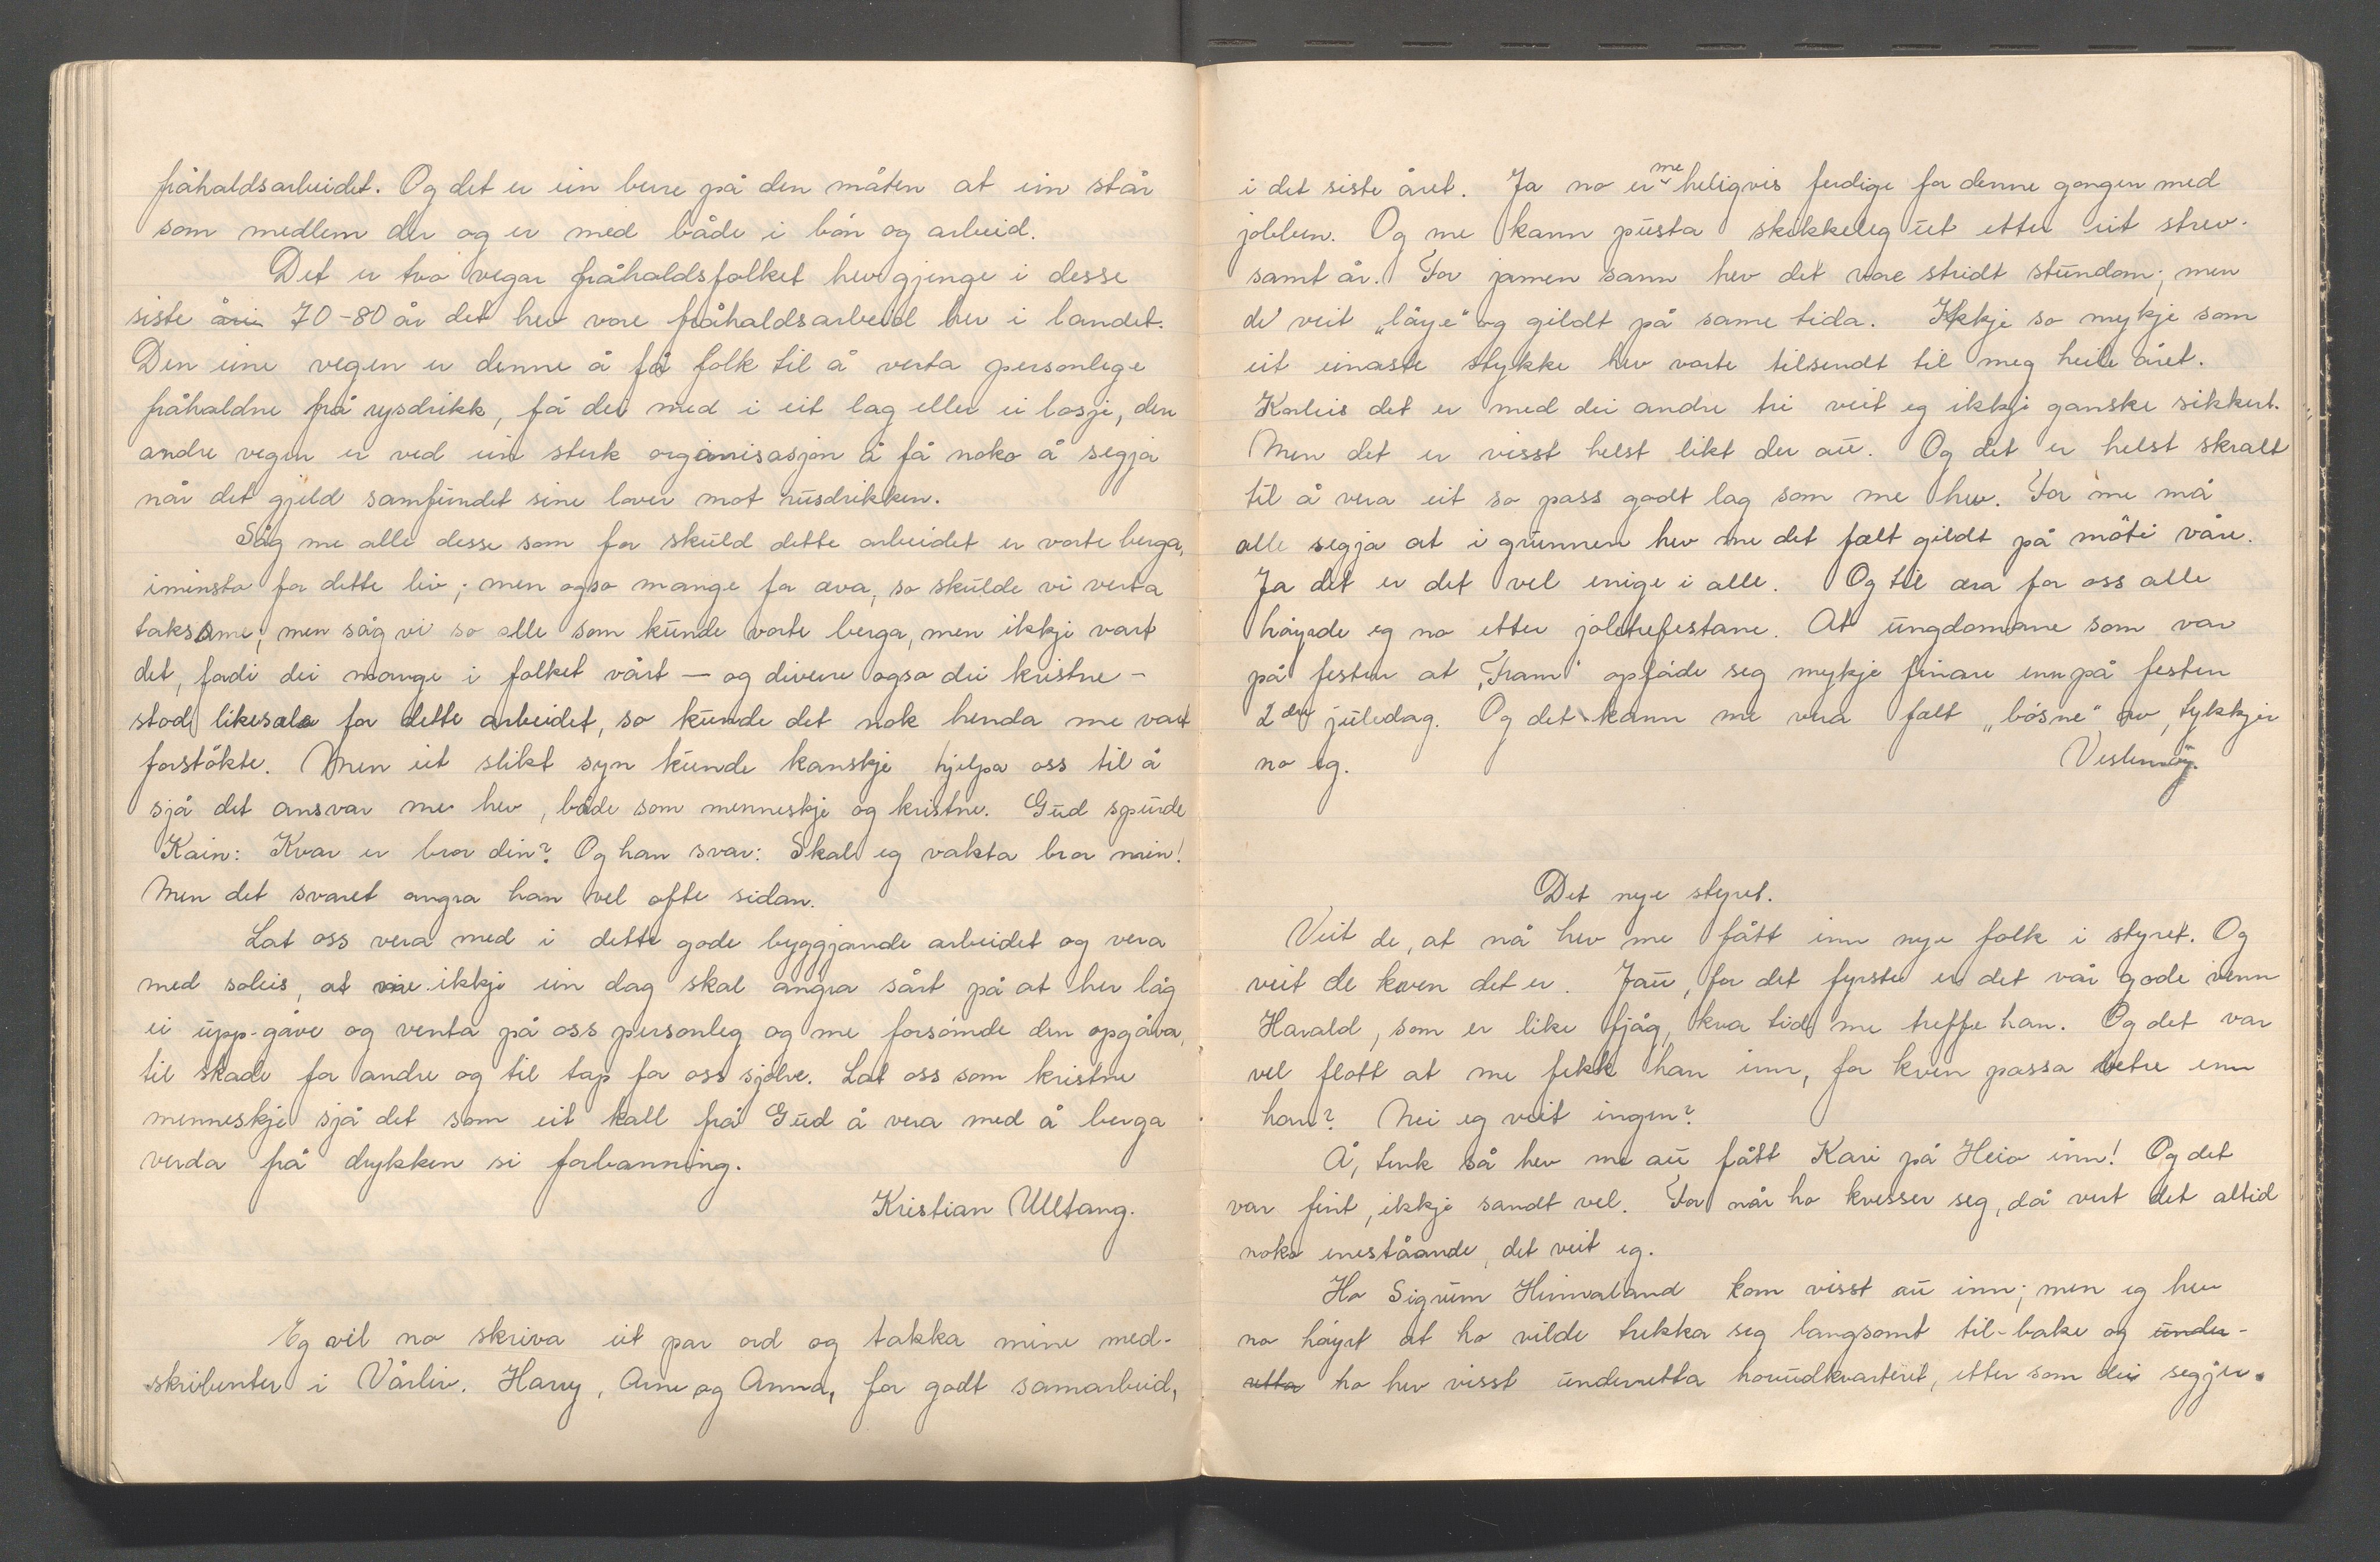 fråhaldsarbeidet. Og det er ein berre på den måten at ein står
som medlem der og er med både i bön og arbeid.
Det er tvo vegar fråhaldsfolket hev gjenge i desse
siste åri 70-80 år det hev vore fråhaldsarbeid her i landet.
Den eine vegen er denne å få folk til å verta personlege
fråhaldne frå rysdrikk, få dei med i eit lag eller ei losje, den
andre vegen er ved ein sterk organisasjon å få noko å segja
når det gjeld samfundet sine lover mot rusdrikken.
Såg me alle desse som for skuld dette arbeidet er vorte berga,
iminsto for dette liv; men ogso mange for æva, so skulde vi verta
taksame; men såg vi so alle som kunde vorte berga, men ikkje vart
det, fordi dei mange i folket vårt - og diverre ogso dei kristne -
stod likesæle for dette arbeidet, so kunde det nok henda me vart
forstökte. Men eit slikt syn kunde kanskje hjelpa oss til å
sjå det ansvar me hev, både som menneskje og kristne. Gud spurde
Kain: Kvar er bror din? Og han svar: Skal eg vakta bror min!
Men det svaret angra han vel ofte sidan.
Lat oss vera med i dette gode byggjande arbeidet og vera
med soleis, at me ikkje ein dag skal angra sårt på at her låg
ei upp-gåve og venta på oss personleg og me forsömde den opgåva,
til skade for andre og til tap for oss sjölve. Lat oss som kristne
menneskje sjå det som eit kall frå Gud å vera med å berga
verda frå drykken si forbanning.
Kristian Ulltang.
Eg vil no skriva eit par ord og takka mine med-
skribenter i Vårliv. Harry, Arne og Anna, for godt samarbeid,
i det siste året. Ja no er me heligvis ferdige for denne gongen med
jobben. Og me kann pusta skikkeleg ut etter eit strev-
samt år. For jamen sann hev det vore stridt stundom; men
de veit „löye" og gildt på same tida. Ikkje so mykje som
eit einaste stykke hev vorte tilsendt til meg heile året.
Korleis det er med dei andre tri veit eg ikkje ganske sikkert.
Men det er visst helst likt der au. Og det er helst skralt
til å vera eit so pass godt lag som me hev. For me må
alle segja at i grunnen hev me det fælt gildt på möti våre.
Ja det er det vel enige i alle. Og til æra for oss alle
höyrde eg no etter joletrefestane. At ungdomane som var
på festen at „Fram" opförde seg mykje finare enn på festen
2den juledag. Og det kann me vera fælt „bösne" av, tykkjer
no eg. Veslemöy.
Det nye styret.
Veit de, at nå hev me fått inn nye folk i styret. Og
veit de kven det er. Jau, for det fyrste er det vår gode venn
Harald, som er like fjåg, kva tid me treffe han. Og det var
vel flott at me fekk han inn, for kven passa betre enn
han? Nei eg veit ingen?
Å, tenk så hev me au fått Kari på Heio inn! Og det
var fint, ikkje sandt vel. For når ho kvesser seg, då vert det altid
noko eneståande, det veit eg.
Ho Sigrunn Hinnaland kom visst au inn; men eg hev
no höyrt at ho vilde trekka seg langsomt til-bake og under-
retta ho hev visst underretta hovudkvarteret, etter som dei segjer.